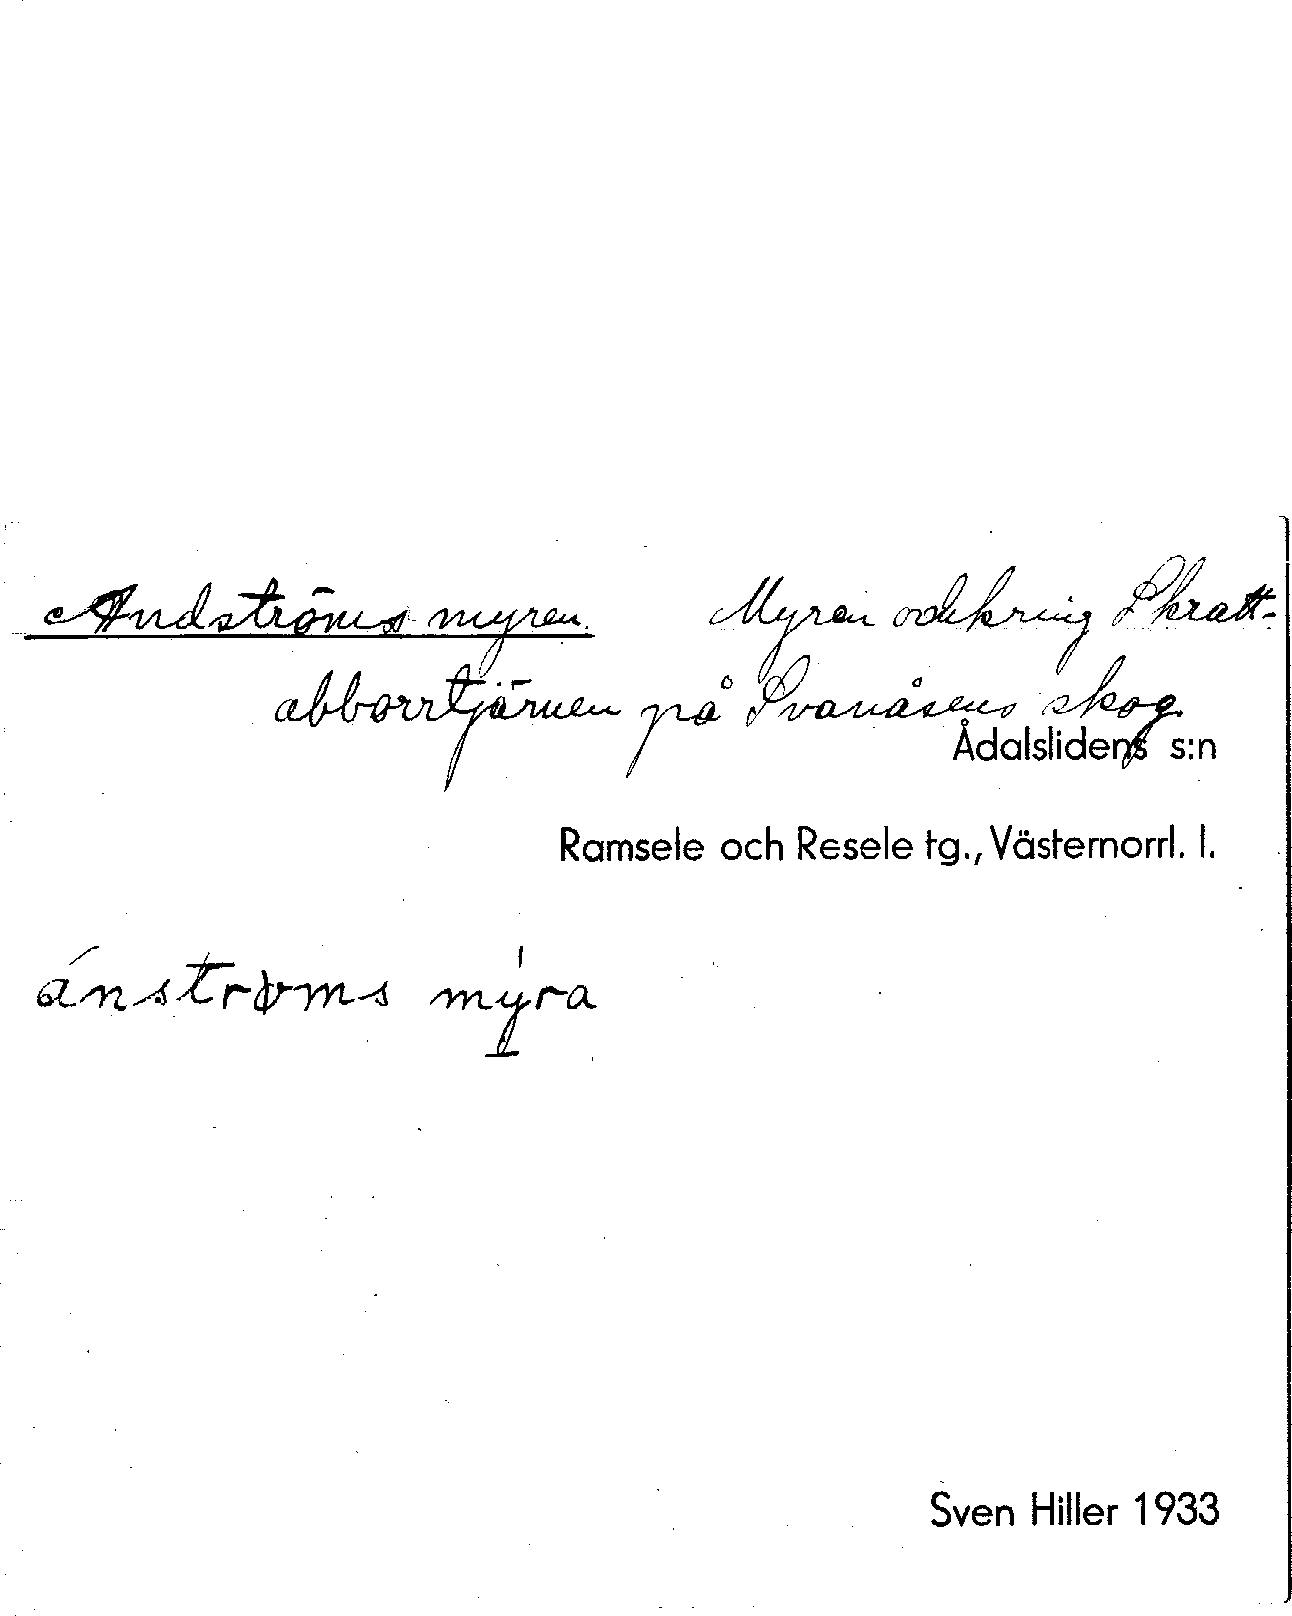 Andströms myren. Myren odikring Skratt-
abborrtjärnen på Svanåsens skog
Ådalslidens s:n
Ramsele och Resele tg., Västernorrl. l.
ánstrøms mýra
Sven Hiller 1933